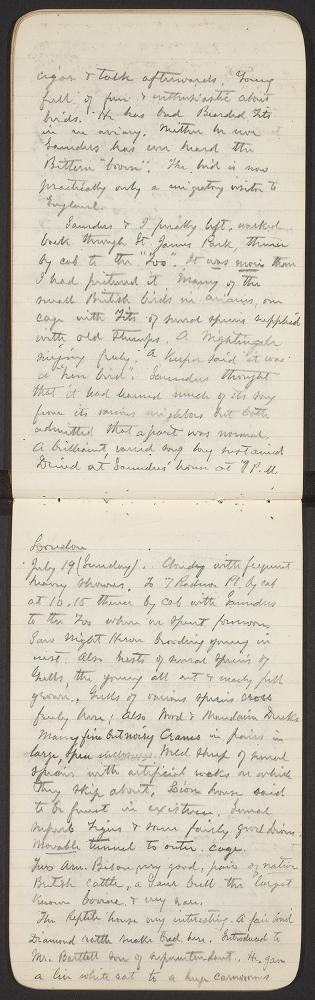 cigar & talk afterwards. Young
full of fun & enthusiastic about
birds. He has had Bearded Tits
in an aviary. Neither he nor
Saunders has ever heard the
Bittern "boom". The bird is now
practically only a migratory visitor to
England.
Saunders & I finally left, walked
back through St. James Park, thence
by cab to the "Zoo". It was more than
I had pictured it. Many of the
small British birds in aviaries, one
cage with Tits of several species supplied
with old stumps. A Nightingale
singing freely. A Keeper said "it was
a "hen bird". Saunders thought
that it had learned much of its song
from its various neighbors but both
admitted that a part was normal.
A brilliant, varied song long sustained
Dined at Saunders' house at 8 P.M.
London
July 19 (Sunday). Cloudy with frequent
heavy showers. To 7 Radnor Pl. by cab
at 10.15 thence by cab with Saunders
to the Zoo where we spent forenoon.
Saw Night Heron brooding young in
nest. Also nests of several species of
Gulls, the young all out & nearly full
grown. Gulls of various species cross
freely here; also Wood & Mandarin Ducks
Many fine but noisy Cranes in pairs in
large, open enclosures. Wild sheep of several
species with artificial rocks on which
they skip about. Lion house said
to be finest in existence. Several
superb Tigers & some fairly good Lions.
Movable tunnel to outer cage.
Two Am. Bison very good, pair of native
British cattle, a Gaur bull the largest
known bovine & very rare.
The Reptile house very interesting. A fair sized
Diamond rattle snake bred here. Introduced to
Mr. Bartlett son of superintendent. He gave
a live white rat to a huge carnivorous